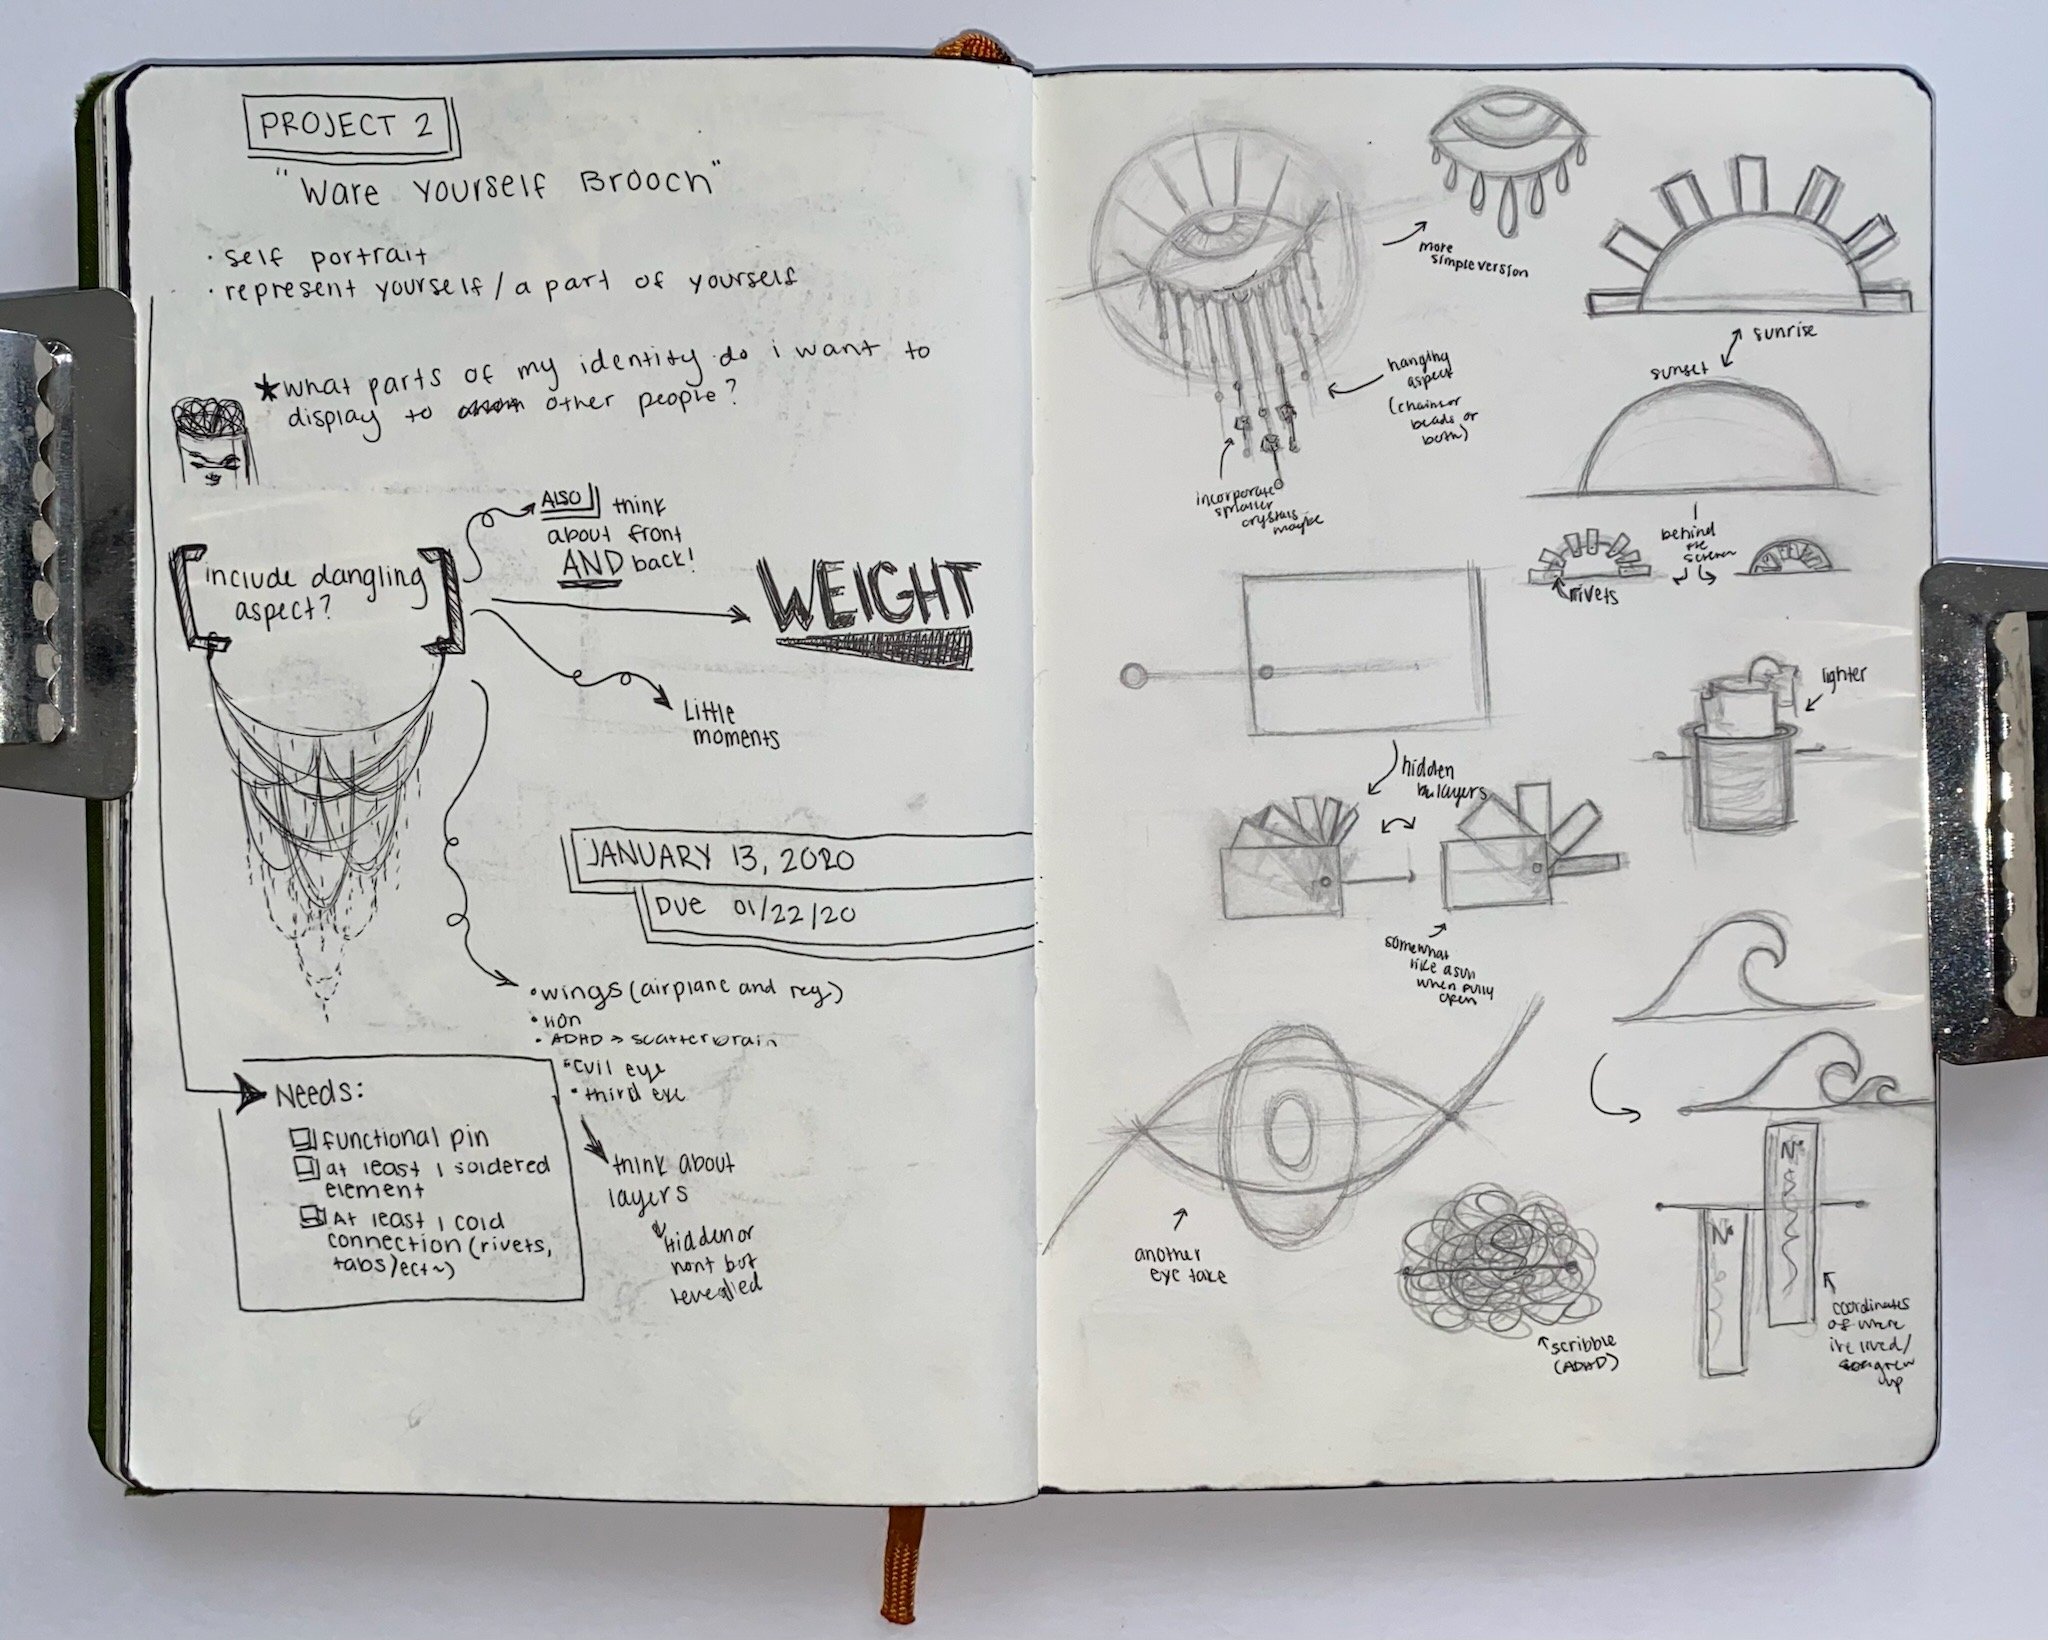 PROJECT 2
"Ware Yourself Brooch"
· self portrait
· represent yourself / a part of yourself
★ what parts of my identity do i want to
display to other people?
ALSO think
about front
AND back!
include dangling
aspect?
WEIGHT
Little
moments
JANUARY 13, 2020
DUE 01/22/20
• wings (airplane and reg)
• lion
• ADHD > scatterbrain
• evil eye
• third eye
think about
layers
hidden or
nont but
revealed
Needs:
functional pin
at least 1 soldered
element
At least 1 cold
connection (rivets,
tabs/ect~)
more
simple version
hanging
aspect
(chains or
beads or
both)
incorporate
smaller
crystals
maybe
sunrise
sunset
behind
the
screen
rivets
lighter
hidden
layers
somewhat
like a sun
when fully
open
another
eye take
scribble
(ADHD)
N°
N°
coordinates
of where
i've lived/
grew
up